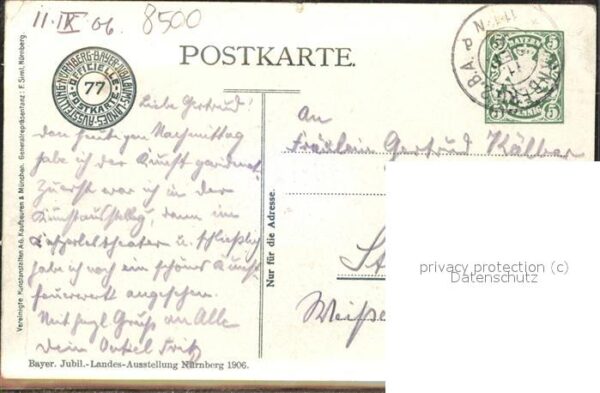 11. IX 06.
8500
POSTKARTE.
NÜRNBERG-BAYER-JUBILÄUMS-LANDES-AUSSTELLUNG
OFFICIELLE
77
POSTKARTE
BAYERN
5
PFENNIG
Liebe Gertrud!
Den heutigen Nachmittag
habe ich der Kunst gewidmet.
Zuerst war ich in der
Kunstausstellg, dann im
Kasperletheater u. schließlich
habe ich noch ein schönes Kunst
feuerwerk angesehen.
Mit hzgl Gruß an Alle
Dein Onkel Fritz
An
Fräulein Gertrud
St
Weiße
Nur für die Adresse.
Vereinigte Kunstanstalten A.G. Kaufbeuren & München. Generalrepräsentanz: F. Siml, Nürnberg.
Bayer. Jubil.-Landes-Ausstellung Nürnberg 1906.
privacy protection (c)
Datenschutz